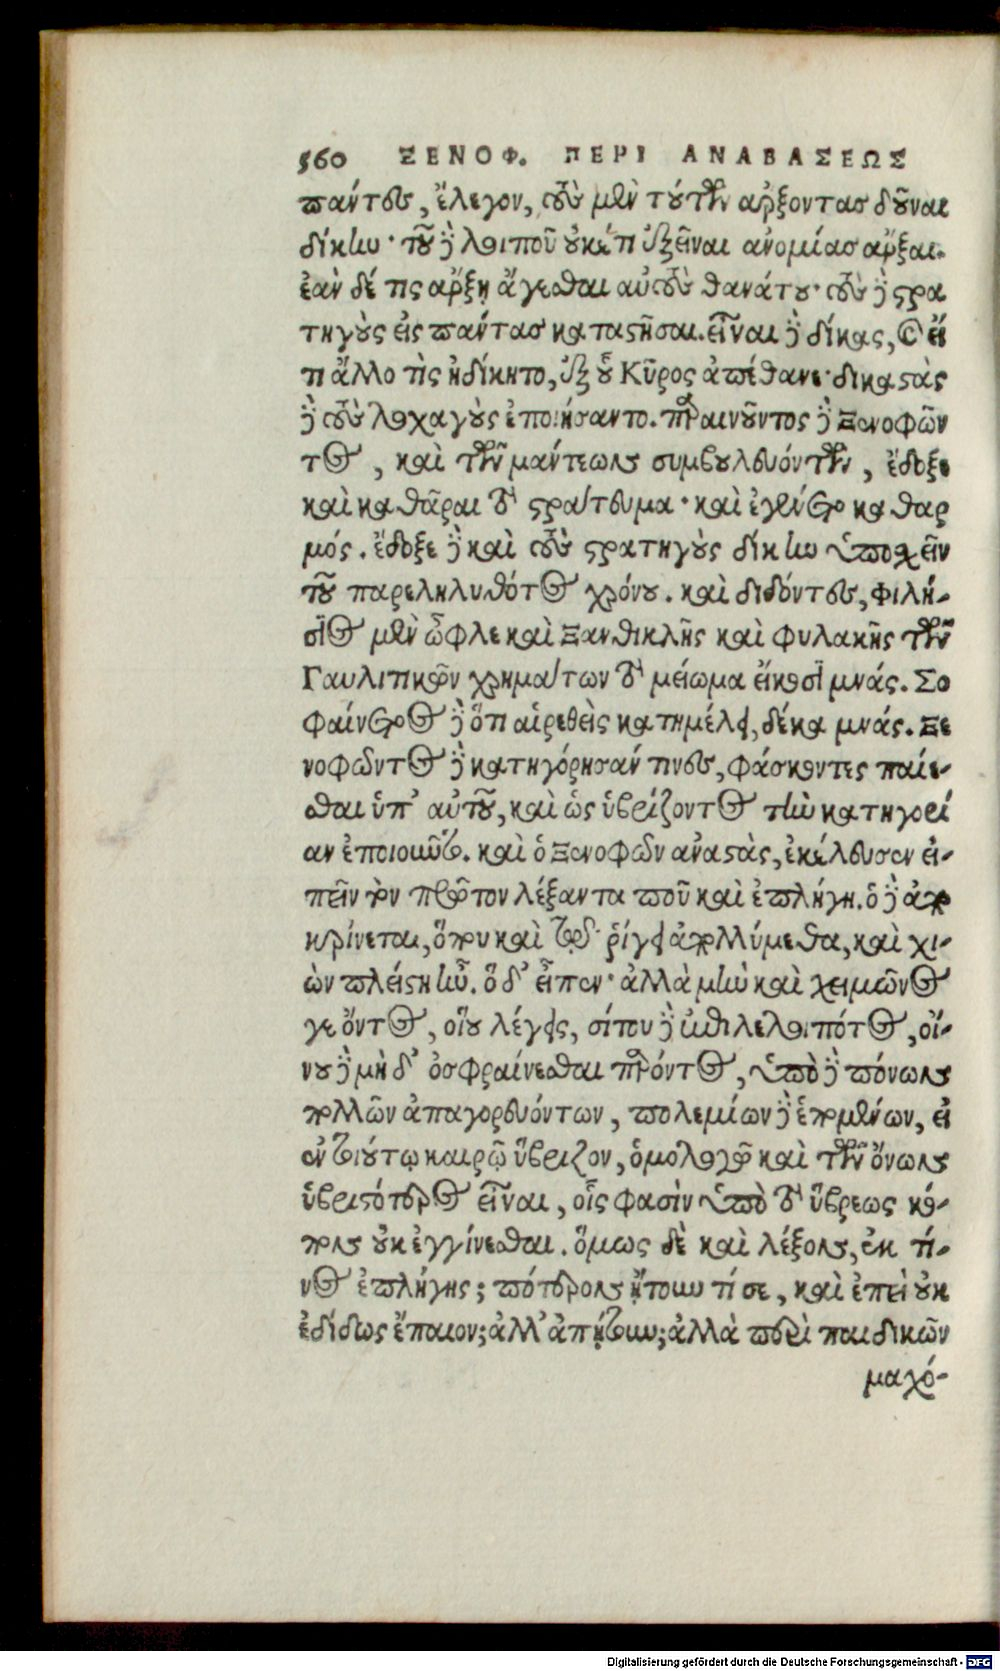 560 ΞΕΝΟΦ. ΠΕΡΙ ΑΝΑΒΑΣΕΩΣ
πάντες, ἔλεγον, τοὺς μὲν τούτων ἄρξαντας δοῦναι
δίκην· τοῦ δὲ λοιποῦ οὐκέτι ἐξεῖναι ἀνομίας ἄρξαι.
ἐὰν δέ τις ἄρξῃ ἄγεσθαι αὐτοὺς θανάτου· τοὺς δὲ στρα
τηγοὺς εἰς πάντας καταστῆσαι. εἶναι δὲ δίκας, καὶ εἴ
τι ἄλλο τὶς ἠδίκητο, ἐξ οὗ Κῦρος ἀπέθανε· δικαστὰς
δὲ τοὺς λοχαγοὺς ἐποιήσαντο. παραινοῦντος δὲ Ξενοφῶν
τος, καὶ τῶν μάντεων συμβουλευόντων, ἔδοξε
καὶ καθᾶραι τὸ στράτευμα· καὶ ἐγένετο καθαρ
μός. ἔδοξε δὲ καὶ τοὺς στρατηγοὺς δίκην ὑποσχεῖν
τοῦ παρεληλυθότος χρόνου. καὶ διδόντες, Φιλή-
σιος μὲν ὦφλε καὶ Ξανθικλῆς καὶ φυλακῆς τῶν
Γαυλιτικῶν χρημάτων τὸ μείωμα εἴκοσι μνάς. Σο
φαίνετος δὲ ὅτι αἱρεθεὶς κατημέλει, δέκα μνάς. Ξε
νοφῶντος δὲ κατηγόρησάν τινες, φάσκοντες παίε-
σθαι ὑπ' αὐτοῦ, καὶ ὡς ὑβρίζοντος τὴν κατηγορί
αν ἐποιοῦντο. καὶ ὁ Ξενοφῶν ἀναστὰς, ἐκέλευσεν εἰ-
πεῖν τὸν πρῶτον λέξαντα ποῦ καὶ ἐπλήγη. ὁ δὲ ἀπο
κρίνεται, ὅπου καὶ τῷ ῥίγει ἀπολλύμεθα, καὶ χι-
ὼν πλείστη ἦν. ὅ δ' εἶπεν· ἀλλὰ μὴν καὶ χειμῶνος
γε ὄντος, οἵου λέγεις, σίτου δὲ ἐπιλελοιπότος, οἴ-
νου δὲ μὴ δ' ὀσφραίνεσθαι παρόντος, ὑπὸ δὲ πόνων
πολλῶν ἀπαγορευόντων, πολεμίων δὲ ἑπομένων, εἰ
ἐν τοιούτῳ καιρῷ ὕβριζον, ὁμολογῶ καὶ τῶν ὄνων
ὑβριστότερος εἶναι, οἷς φασὶν ὑπὸ τὸ ὕβρεως κό-
πον οὐκ ἐγγίνεσθαι. ὅμως δὲ καὶ λέξον, ἐκ τί-
νος ἐπλήγης; πότερον ᾔτουν τί σε, καὶ ἐπεὶ οὐκ
ἐδίδως ἔπαιον; ἀλλ' ἀπῄτουν; ἀλλὰ περὶ παιδικῶν
μαχό-
Digitalisierung gefördert durch die Deutsche Forschungsgemeinschaft - DFG